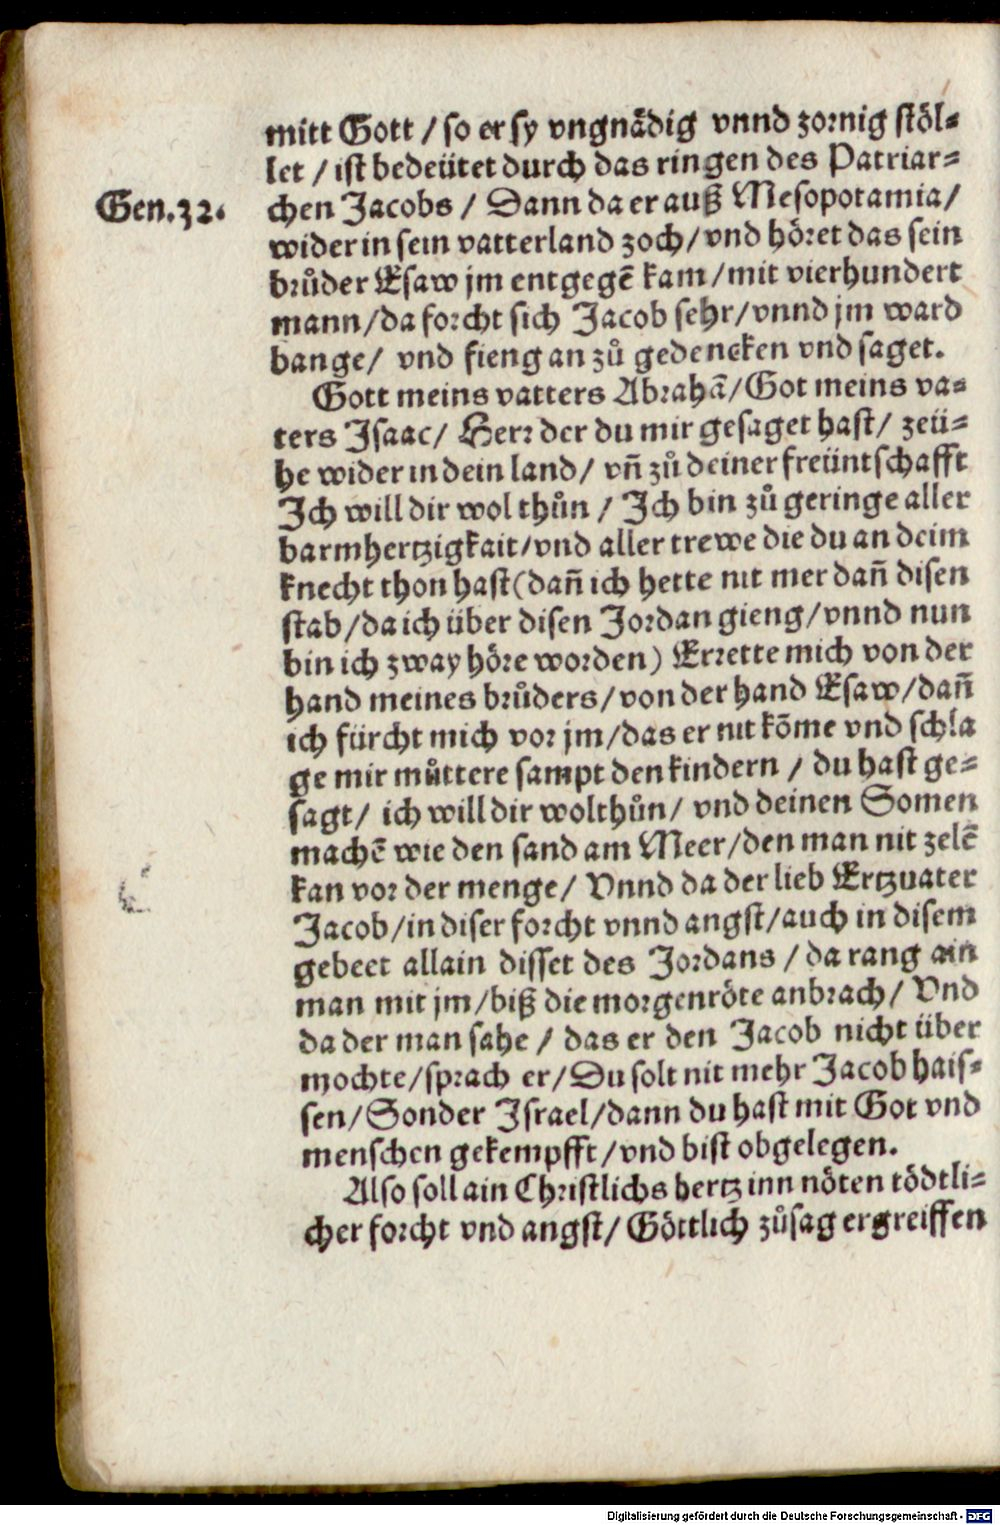 mitt Gott / so er sy vngnådig vnnd zornig stöl-
let / ist bedeütet durch das ringen des Patriar-
Gen.32. chen Jacobs / Dann da er auß Mesopotamia/
wider in sein vatterland zoch/vnd höret das sein
brůder Esaw jm entgegẽ kam/mit vierhundert
mann/da forcht sich Jacob sehr/vnnd jm ward
bange/ vnd fieng an zů gedencken vnd saget.
Gott meins vatters Abrahã/Got meins va-
ters Isaac/ Herr der du mir gesaget hast/ zeü-
he wider in dein land/ vñ zů deiner freüntschafft
Ich will dir wol thůn / Ich bin zů geringe aller
barmhertzigkait/vnd aller trewe die du an deim
knecht thon hast(dañ ich hette nit mer dañ disen
stab/da ich über disen Jordan gieng/vnnd nun
bin ich zway höre worden) Errette mich von der
hand meines brůders/von der hand Esaw/dañ
ich fürcht mich vor jm/das er nit kõme vnd schla
ge mir můttere sampt den kindern / du hast ge-
sagt/ ich will dir wolthůn/ vnd deinen Somen
machẽ wie den sand am Meer/den man nit zelẽ
kan vor der menge/ Vnnd da der lieb Ertzuater
Jacob/in diser forcht vnnd angst/auch in disem
gebeet allain disset des Jordans / da rang ain
man mit jm/biß die morgenröte anbrach/ Vnd
da der man sahe / das er den Jacob nicht über
mochte/sprach er/Du solt nit mehr Jacob hais-
sen/Sonder Israel/dann du hast mit Got vnd
menschen gekempfft/vnd bist obgelegen.
Also soll ain Christlichs hertz inn nöten tödtli-
cher forcht vnd angst/ Göttlich zůsag ergreiffen
Digitalisierung gefördert durch die Deutsche Forschungsgemeinschaft - DFG